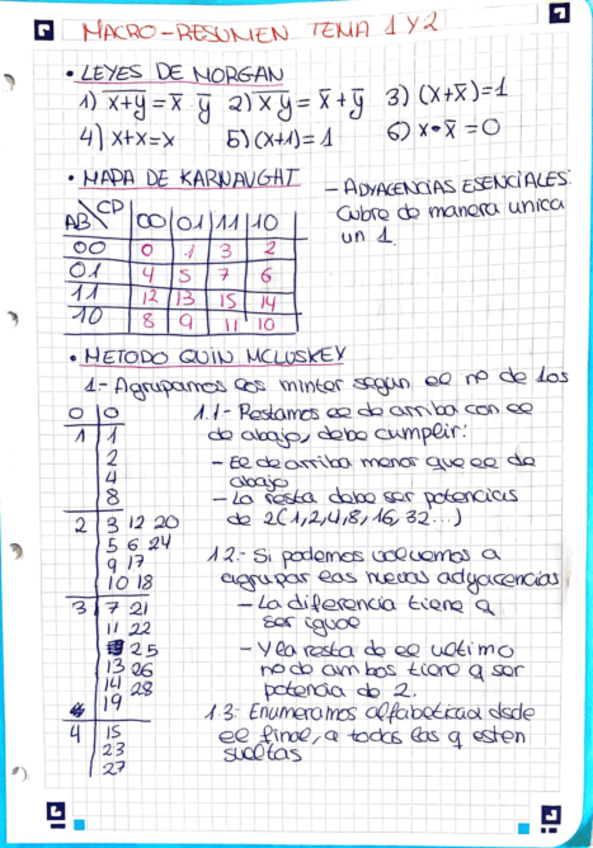 MACRO-RESUMEN TEMA 1 Y 2
• LEYES DE MORGAN
1) \overline{x+y} = x̄ ȳ 2) \overline{xy} = x̄ + ȳ 3) (x+x̄)=1
4) x+x=x 5) (x+1)=1 6) x•x̄=0
• MAPA DE KARNAUGHT
AB\CD 00 01 11 10
00 0 1 3 2
01 4 5 7 6
11 12 13 15 14
10 8 9 11 10
- ADYACENCIAS ESENCIALES:
Cubre de manera unica
un 1.
• METODO QUIN MCLUSKEY
1.- Agrupamos los minter segun el nº de los
0 0
1 1
2
4
8
2 3 12 20
5 6 24
9 17
10 18
3 7 21
11 22
25
13 26
14 28
19
4 15
23
27
1.1- Restamos el de arriba con el
de abajo, debe cumplir:
- El de arriba menor que el de
abajo
- La resta debe ser potencias
de 2 (1,2,4,8,16,32...)
1.2.- Si podemos volvemos a
agrupar las nuevas adyacencias
- La diferencia tiene q
ser igual
- Y la resta de el ultimo
nodo ambos tiene q ser
potencia de 2.
1.3: Enumeramos alfabetica dsde
el final, a todas las q esten
sueltas